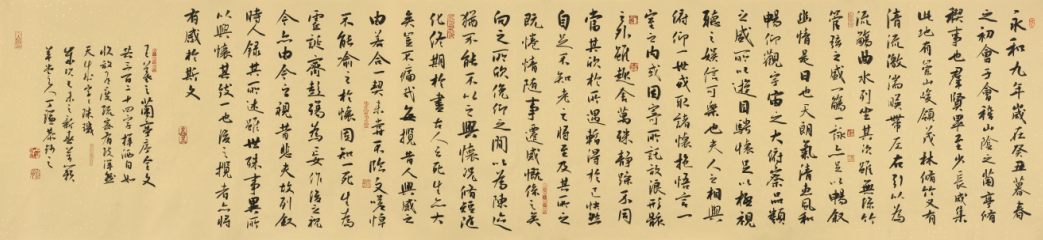 永和九年歲在癸丑暮春
之初會于會稽山陰之蘭亭脩
稧事也群賢畢至少長咸集
此地有崇山峻領茂林脩竹又有
清流激湍暎帶左右引以為
流觴曲水列坐其次雖無絲竹
管弦之盛一觴一詠亦足以暢敘
幽情是日也天朗氣清惠風和
暢仰觀宇宙之大俯察品類
之盛所以遊目騁懷足以極視
聽之娛信可樂也夫人之相與
俯仰一世或取諸懷抱悟言一
室之內或因寄所託放浪形骸
之外雖趣舍萬殊靜躁不同
當其欣於所遇輒得於己怏然
自足不知老之將至及其所之
既惓情隨事遷感慨係之矣
向之所欣俛仰之間以為陳迹
猶不能不以之興懷況脩短隨
化終期於盡古人云死生亦大
矣豈不痛哉每攬昔人興感之
由若合一契未嘗不臨文嗟悼
不能喻之於懷固知一死生為
虛誕齊彭殤為妄作後之視
今亦由今之視昔悲夫故列敘
時人錄其所述雖世殊事異所
以興懷其致一也後之攬者亦將
有感於斯文
蘭亭序全文
共三百二十四字